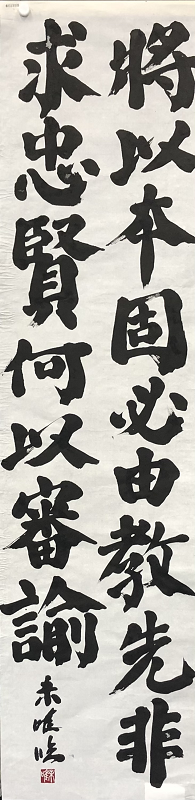 將以本固必由教先非
求忠賢何以審諭